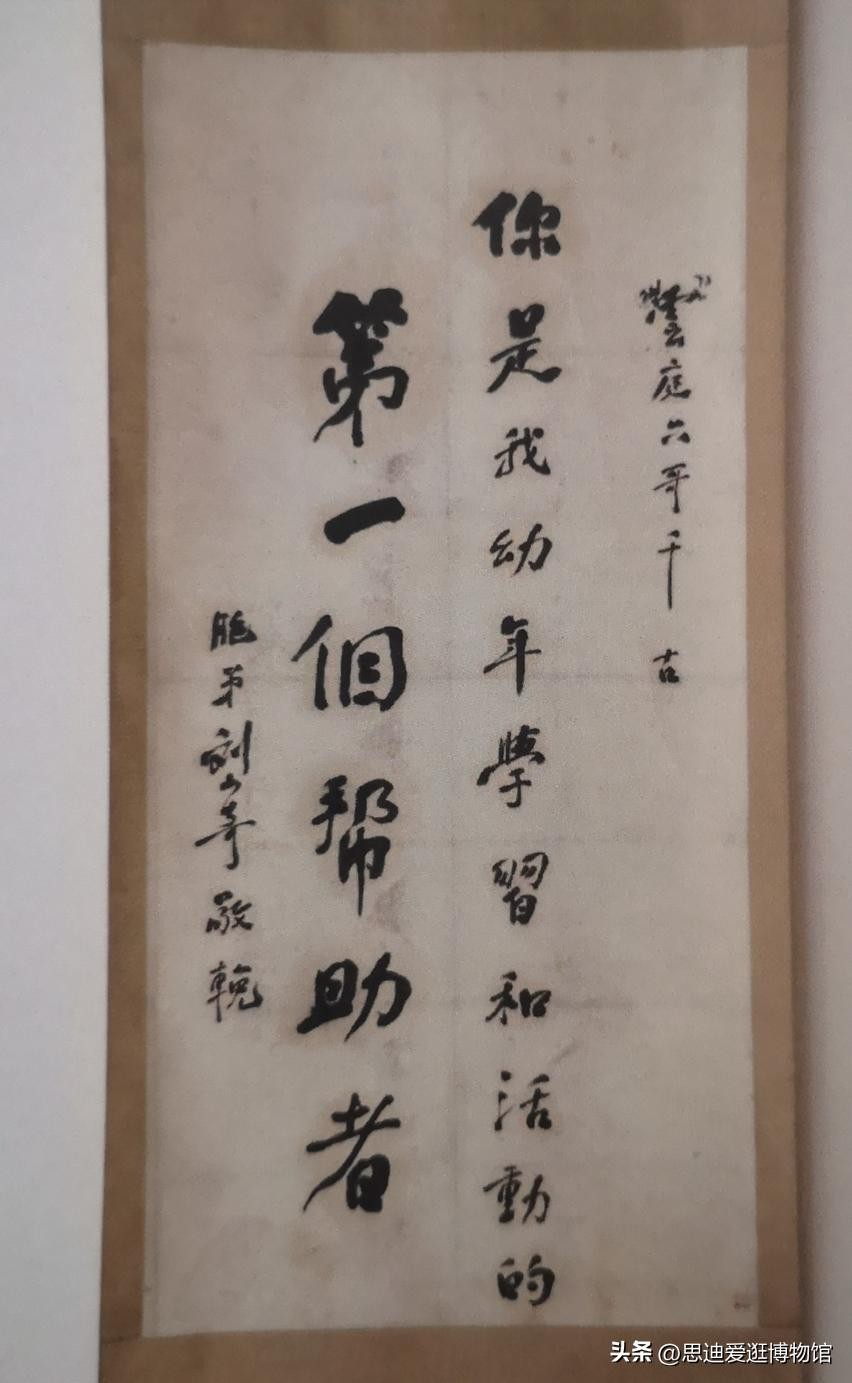 雲庭六哥千古
你是我幼年學習和活動的
第一個帮助者
胞弟劉少奇敬輓
头条 @思迪爱逛博物馆